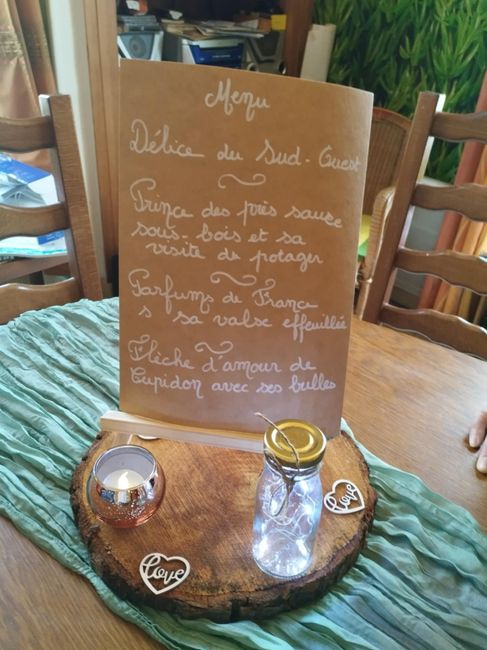 Menu
Délice du Sud-Ouest
Prince des près sauce
sous-bois et sa
visite du potager
Parfums de France
s sa valse effeuillée
Flèche d'amour de
Cupidon avec ses bulles
love
Love